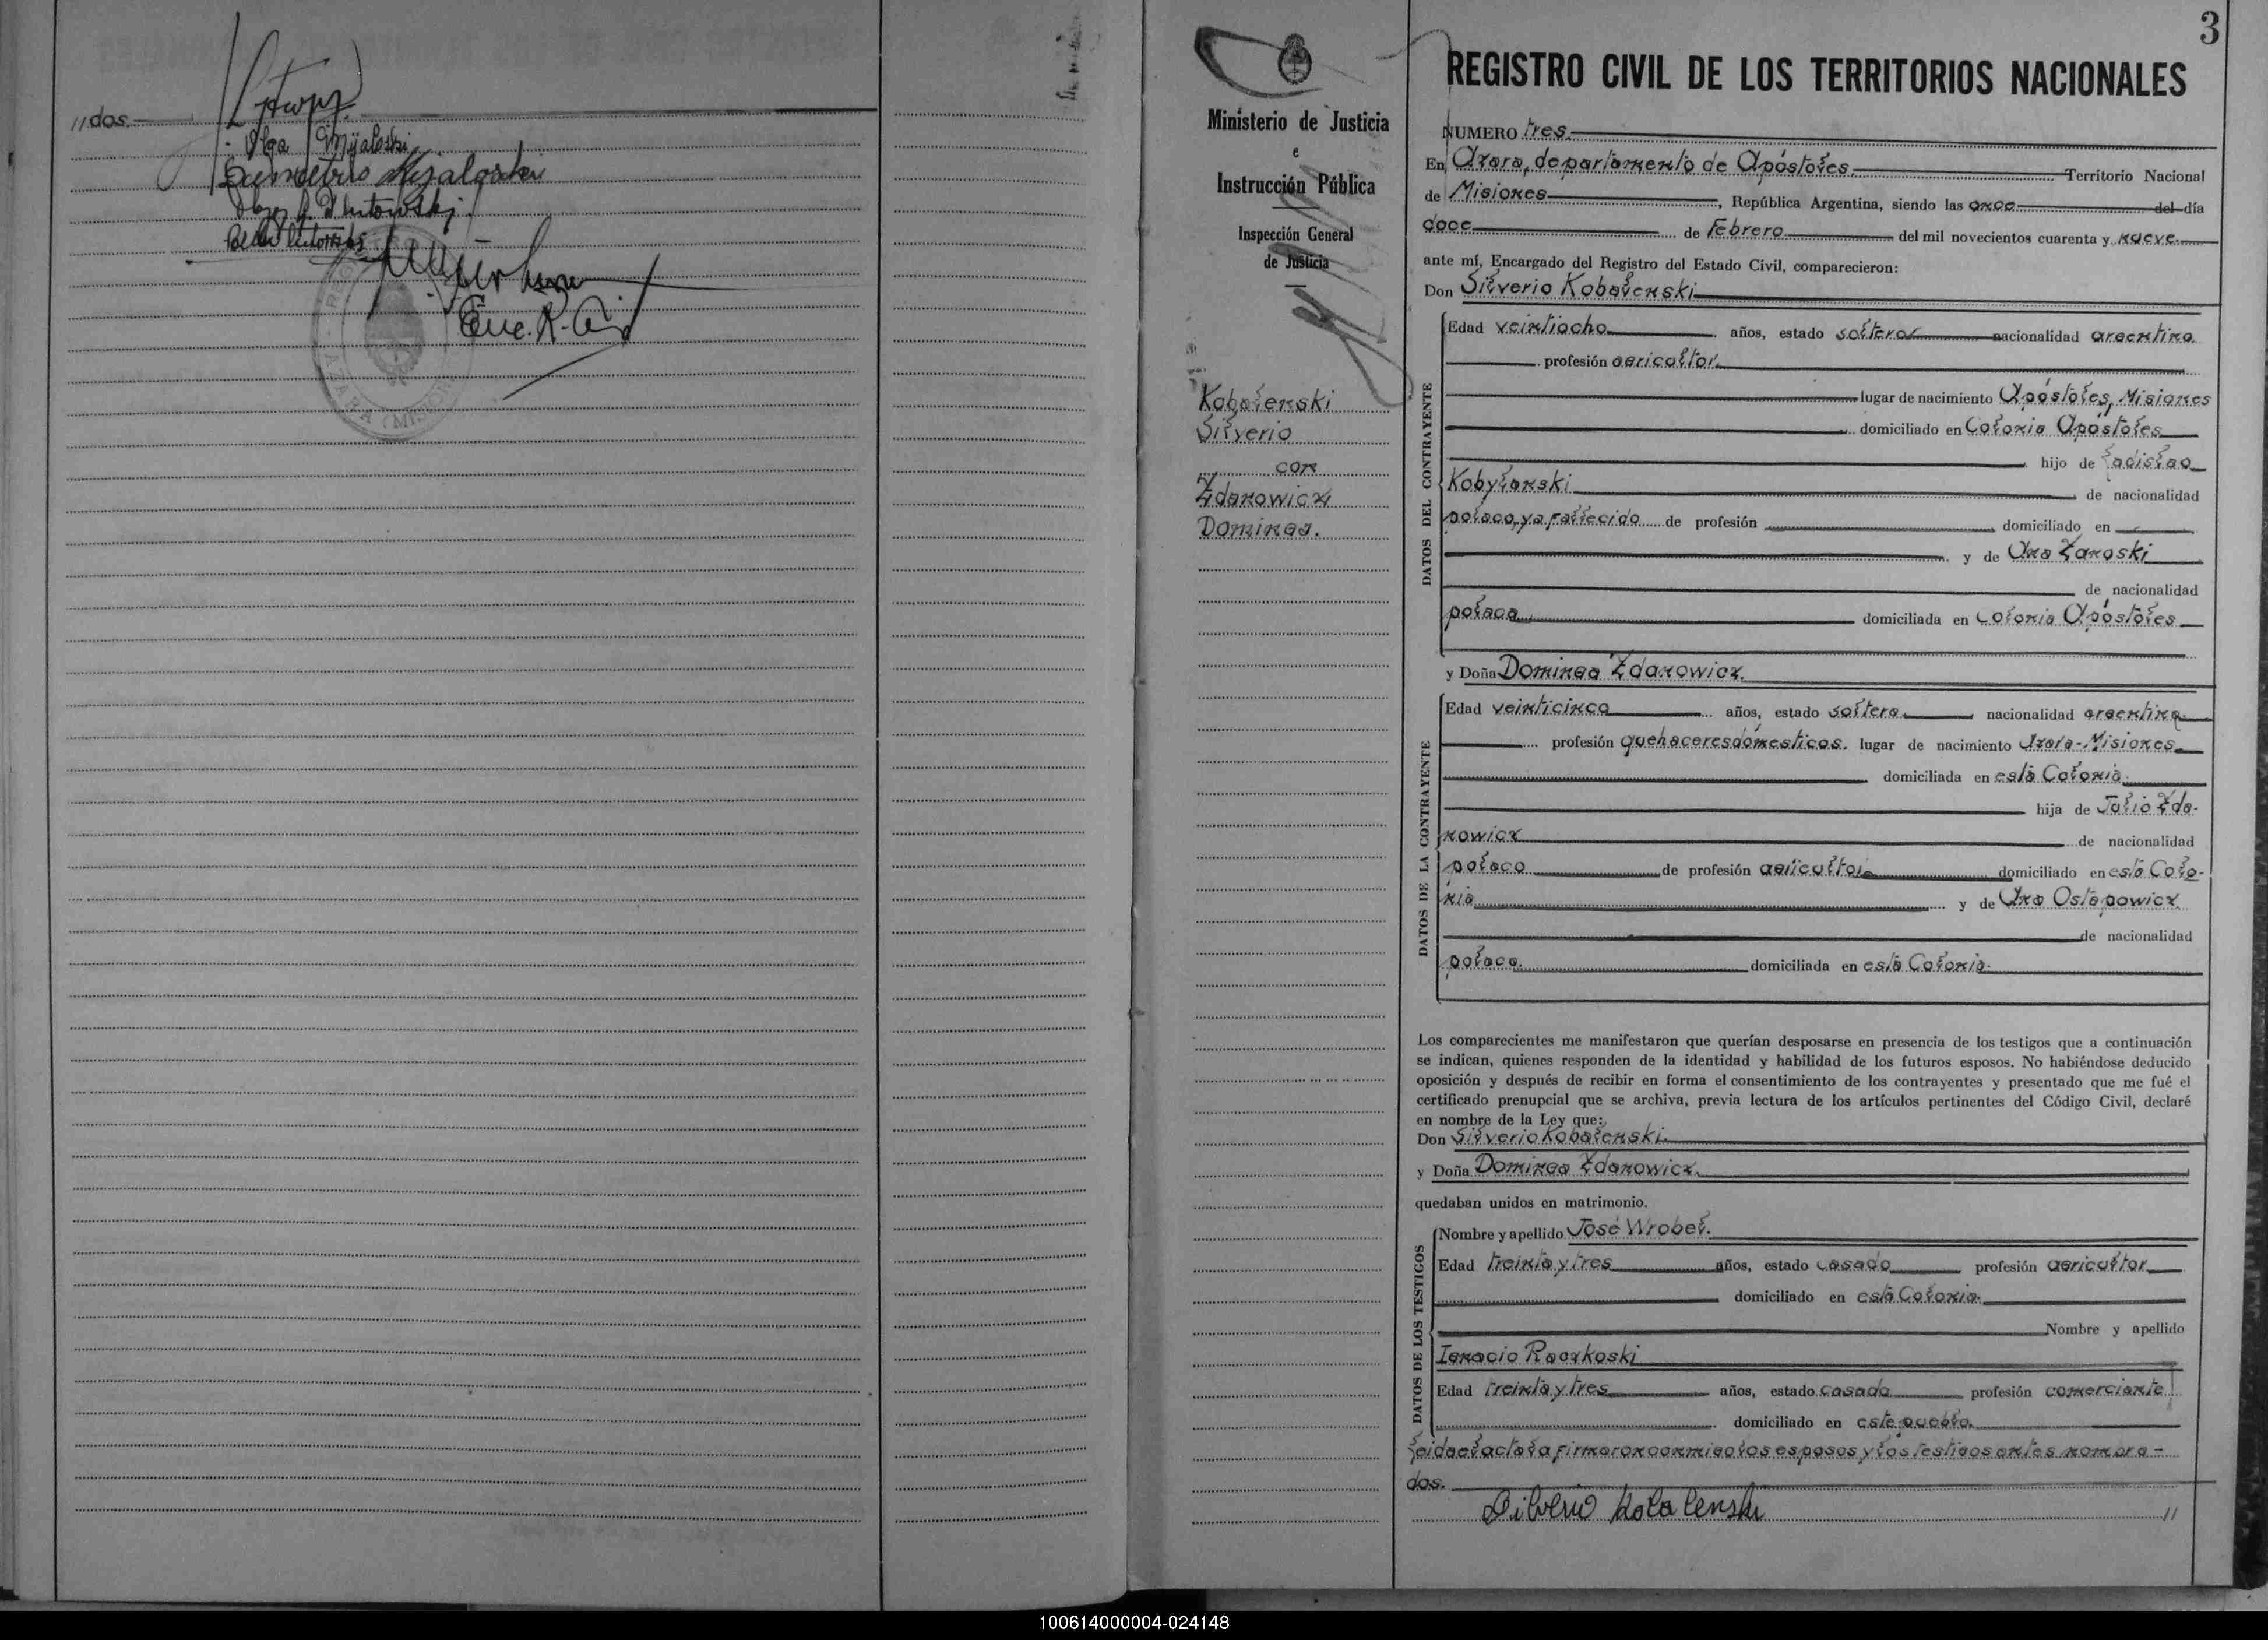 //dos.
Olga Mijaloski
Demetrio Mijaloski
Enc. R. Civil
AZARA (MISIONES)
3
Ministerio de Justicia
e
Instrucción Pública
Inspección General
de Justicia
Kobalenski
Silverio
con
Zdanowicz
Dominga.
REGISTRO CIVIL DE LOS TERRITORIOS NACIONALES
NUMERO tres.
En Azara, departamento de Apóstoles, Territorio Nacional
de Misiones, República Argentina, siendo las once del día
doce de Febrero del mil novecientos cuarenta y nueve.
ante mí, Encargado del Registro del Estado Civil, comparecieron:
Don Silverio Kobalenski
DATOS DEL CONTRAYENTE
Edad veintiocho años, estado soltero nacionalidad argentina
profesión agricultor.
lugar de nacimiento Apóstoles, Misiones
domiciliado en Colonia Apóstoles
hijo de Ladislao
Kobylanski de nacionalidad
polaco, ya fallecido de profesión domiciliado en
y de Ana Zanoski
de nacionalidad
polaca domiciliada en colonia Apóstoles
y Doña Dominga Zdanowicz.
DATOS DE LA CONTRAYENTE
Edad veinticinco años, estado soltera nacionalidad argentina
profesión quehaceres domesticos. lugar de nacimiento Azara-Misiones
domiciliada en esta Colonia.
hija de Julio Zda-
nowicz de nacionalidad
polaco de profesión agricultor domiciliado en esta Colo-
nia y de Ana Ostapowicz
de nacionalidad
polaca. domiciliada en esta Colonia.
Los comparecientes me manifestaron que querían desposarse en presencia de los testigos que a continuación
se indican, quienes responden de la identidad y habilidad de los futuros esposos. No habiéndose deducido
oposición y después de recibir en forma el consentimiento de los contrayentes y presentado que me fué el
certificado prenupcial que se archiva, previa lectura de los artículos pertinentes del Código Civil, declaré
en nombre de la Ley que:
Don Silverio Kobalenski.
y Doña Dominga Zdanowicz.
quedaban unidos en matrimonio.
DATOS DE LOS TESTIGOS
Nombre y apellido José Wrobel.
Edad treinta y tres años, estado casado profesión agricultor
domiciliado en esta Colonia.
Nombre y apellido
Ignacio Raczkoski
Edad treinta y tres años, estado casado profesión comerciante
domiciliado en este pueblo.
Leida el acta la firmaron conmigo los esposos y los testigos antes nombra-
dos.
Silverio Kobalenski //
100614000004-024148